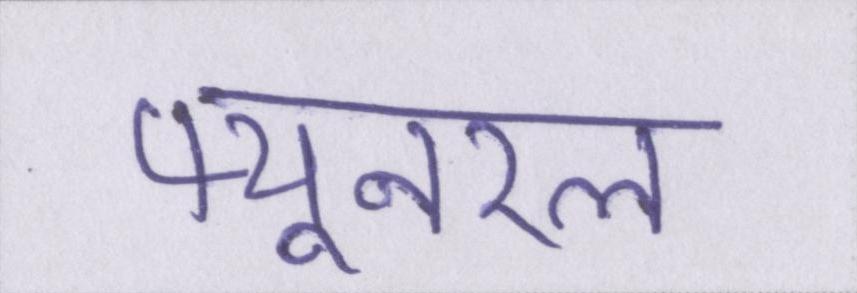 फ्यूनरल